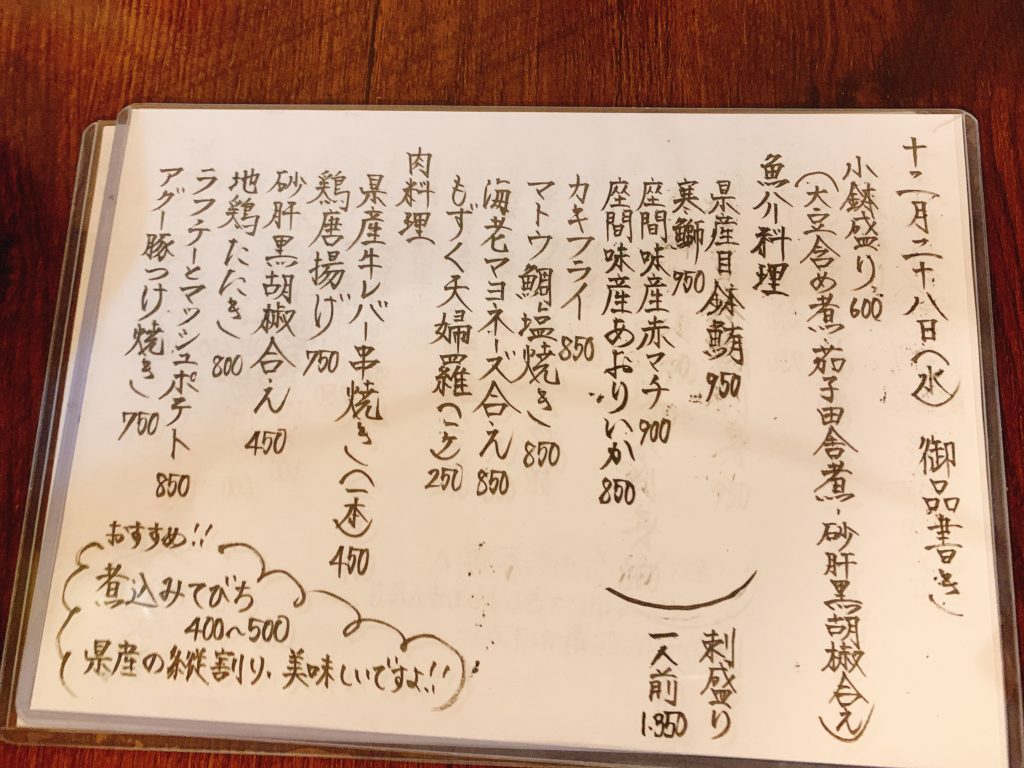 十二月二十八日(水) 御品書き
小鉢盛り 600
(大豆含め煮・茄子田舎煮・砂肝黒胡椒合え)
魚介料理
県産目鉢鮪 950
寒鰤 950
座間味産赤マチ 900
座間味産あおりいか 850
刺盛り
一人前 1.350
カキフライ 850
マトウ鯛塩焼き 850
海老マヨネーズ合え 850
もずく天婦羅(一ヶ) 250
肉料理
県産牛レバー串焼き(一本) 450
鶏唐揚げ 750
砂肝黒胡椒合え 450
地鶏たたき 800
ラフテーとマッシュポテト 850
アグー豚つけ焼き 750
おすすめ!!
煮込みてびち
400~500
県産の縦割り、美味しいですよ!!